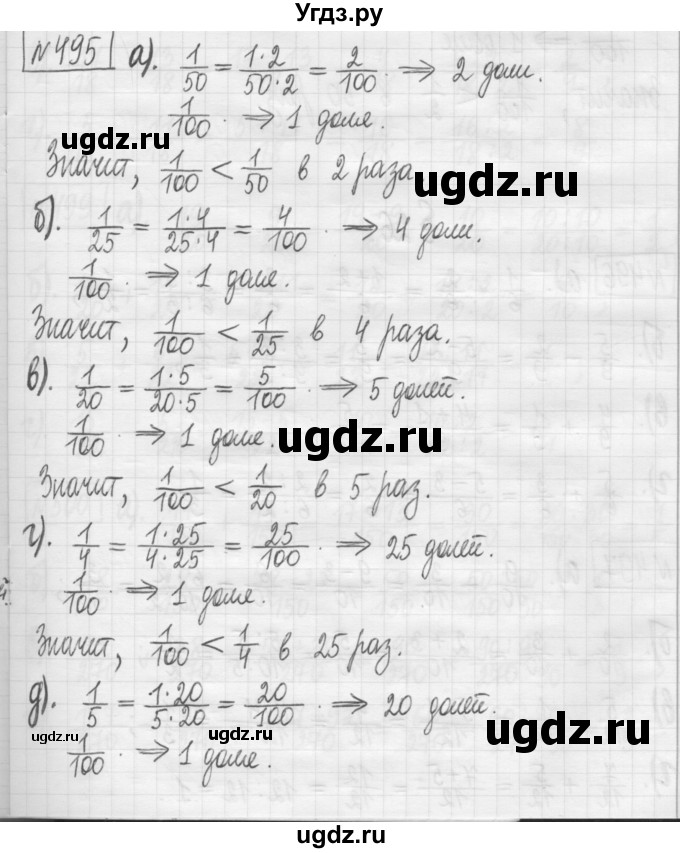 Угдз.ру
№495 а). 1/50 = 1·2/50·2 = 2/100 ⇒ 2 доли.
1/100 ⇒ 1 доля.
ugdz.ru
Значит, 1/100 < 1/50 в 2 раза
ugdz.ru
б). 1/25 = 1·4/25·4 = 4/100 ⇒ 4 доли.
1/100 ⇒ 1 доля.
Значит, 1/100 < 1/25 в 4 раза.
в). 1/20 = 1·5/20·5 = 5/100 ⇒ 5 долей.
1/100 ⇒ 1 доля.
ugdz.ru
Значит, 1/100 < 1/20 в 5 раз.
г). 1/4 = 1·25/4·25 = 25/100 ⇒ 25 долей.
1/100 ⇒ 1 доля.
Значит, 1/100 < 1/4 в 25 раз.
д). 1/5 = 1·20/5·20 = 20/100 ⇒ 20 долей.
ugdz.ru
ugdz.ru
1/100 ⇒ 1 доля.
ugdz.ru